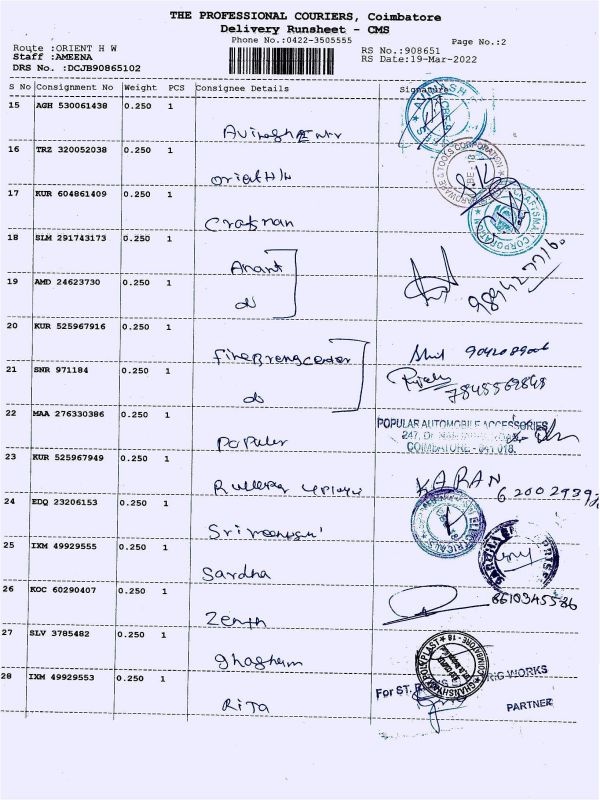 THE PROFESSIONAL COURIERS, Coimbatore
Delivery Runsheet - CMS
Phone No.:0422-3505555
Page No.:2
Route :ORIENT H W
RS No.:908651
Staff :AMEENA
RS Date:19-Mar-2022
DRS No. :DCJB90865102
S No Consignment No Weight PCS Consignee Details Signature
15 AGH 530061438 0.250 1
16 TRZ 320052038 0.250 1
orient H/W
17 KUR 604861409 0.250 1
Crafsman
18 SLM 291743173 0.250 1
Anant
19 AMD 24623730 0.250 1
do
20 KUR 525967916 0.250 1
21 SNR 971184 0.250 1
do
7845569848
22 MAA 276330386 0.250 1
Populer
POPULAR AUTOMOBILE ACCESSORIES
COIMBATORE - 641 018.
23 KUR 525967949 0.250 1
KARAN
24 EDQ 23206153 0.250 1
25 IXM 49929555 0.250 1
Sardha
26 KOC 60290407 0.250 1
Zenth
8610345586
27 SLV 3785482 0.250 1
ghashem
28 IXM 49929553 0.250 1
RITA
For ST. RITA'S
WORKS
PARTNER